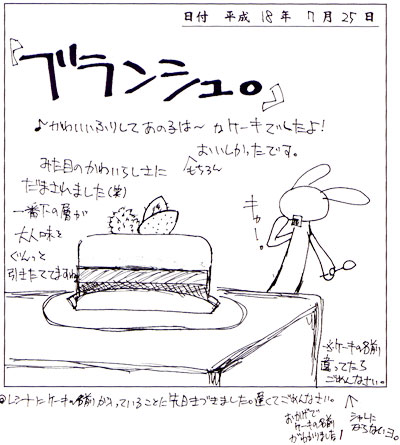 日付 平成 18年 7月 25日
『ブランシュ。』
♪かわいいふりしてあの子は〜 なケーキでしたよ！
おいしかったです。
もちろん
みた目のかわいらしさに
だまされました(笑)
一番下の層が
大人味を
ぐんっと
引きたててますね
キャー!
※ケーキの名前
違ってたら
ごめんなさい。
◎レシートにケーキの名前がのっていることに先日きづきました。遅くてごめんなさい。
おかげで
ケーキの名前
がわかりました!
シャレに
ならないヨ。